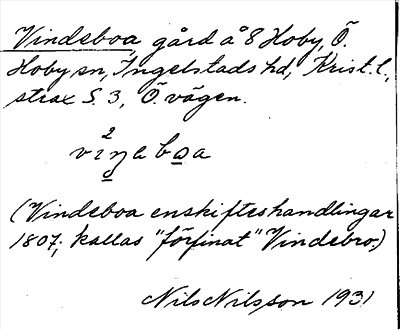 Vindeboa, gård å 8 Hoby, Ö.
Hoby sn, Ingelstads hd, Krist. l.,
strax S. 3, Ö. vägen.
vi²ŋaboa
(Vindeboa enskifteshandlingar
1807; kallas "förfinat" Vindebro.)
Nils Nilsson 1931